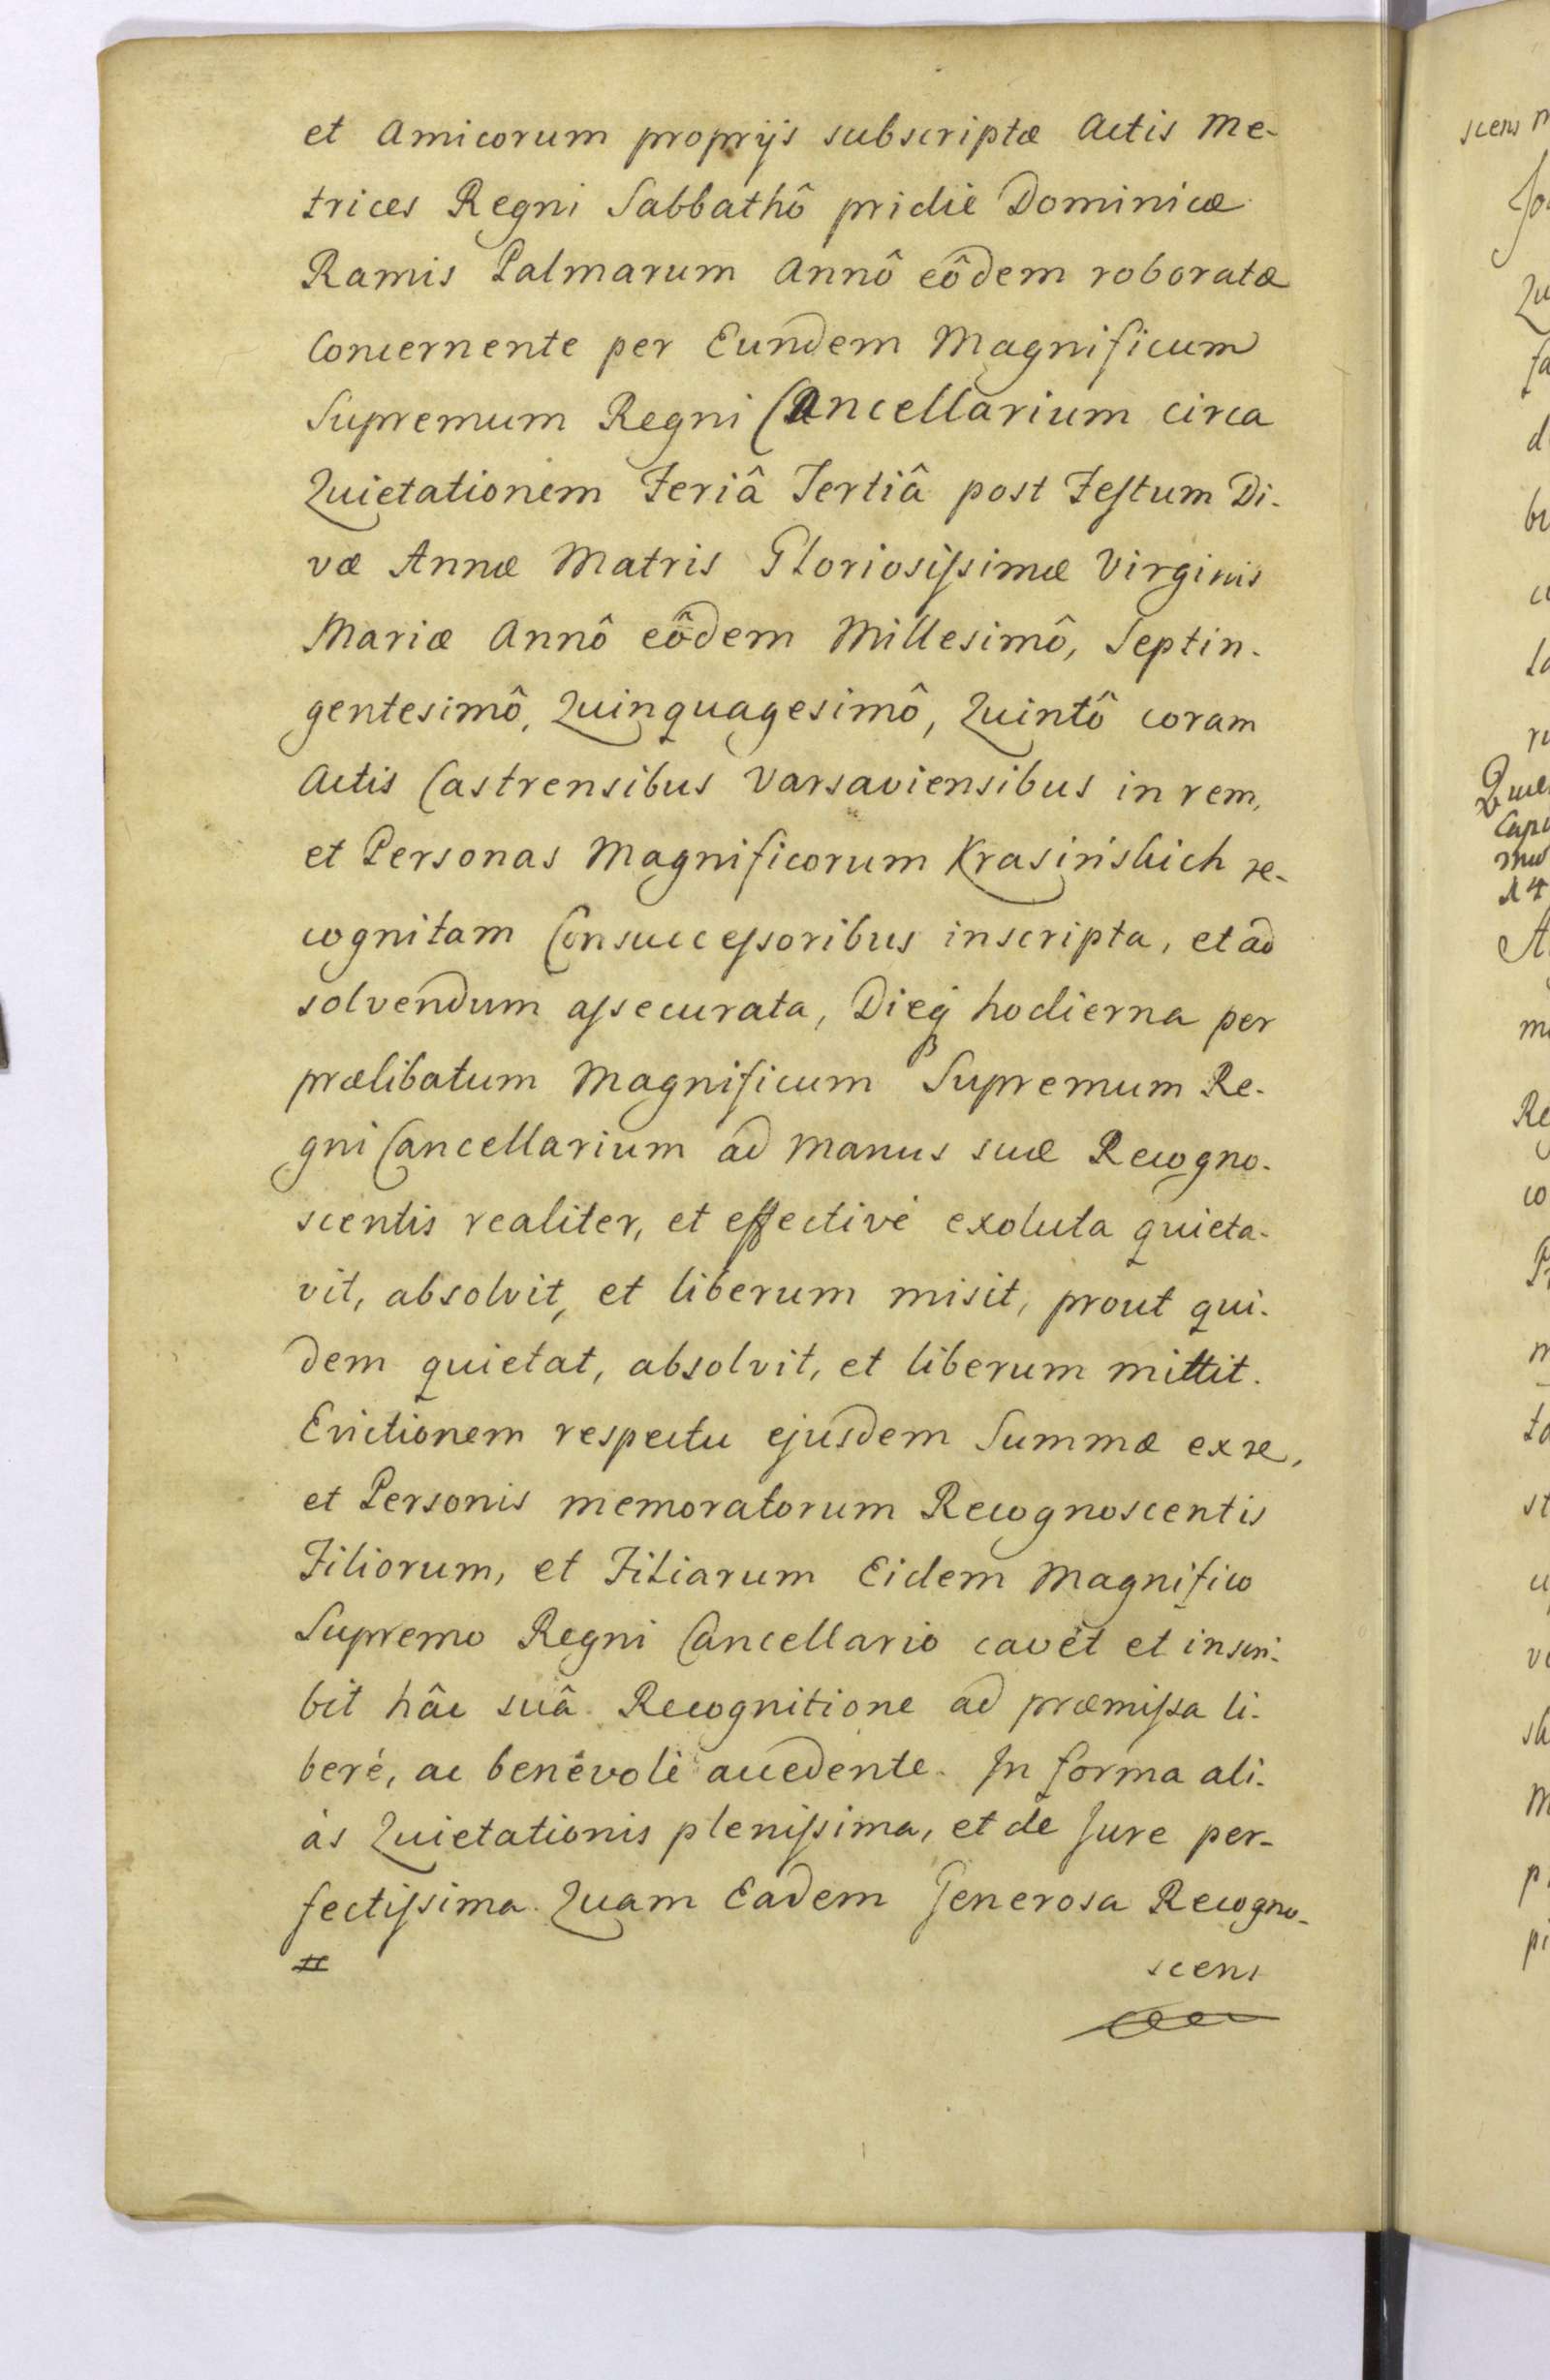 et Amicorum proprijs subscriptæ Actis Me-
trices Regni Sabbathô pridie Dominicæ
Ramis Palmarum Annô eôdem roboratæ
Concernente per Eundem Magnificum
Supremum Regni Cancellarium circa
Quietationem Feriâ Tertiâ post Festum Di-
væ Annæ Matris Gloriosissimæ Virginis
Mariæ Annô eôdem Millesimô, Septin-
gentesimô, Quinquagesimô, Quintô coram
Actis Castrensibus Varsaviensibus in rem,
et Personas Magnificorum Krasińskich re-
cognitam Consuccessoribus inscripta, et ad
solvendum assecurata, Dieq hodierna per
prælibatum Magnificum Supremum Re-
gni Cancellarium ad Manus suæ Recogno-
scentis realiter, et effectivé exoluta quieta-
vit, absolvit, et liberum misit, prout qui-
dem quietat, absolvit, et liberum mittit.
Evictionem respectu ejusdem Summæ ex re,
et Personis memoratorum Recognoscentis
Filiorum, et Filiarum Eidem Magnifico
Supremo Regni Cancellario cavet et inscri-
bit hâc suâ Recognitione ad præmissa li-
beré, ac benévolè accedente. In forma ali-
às Quietationis plenissima, et de Jure per-
fectissima. Quam Eadem Generosa Recogno-
scens